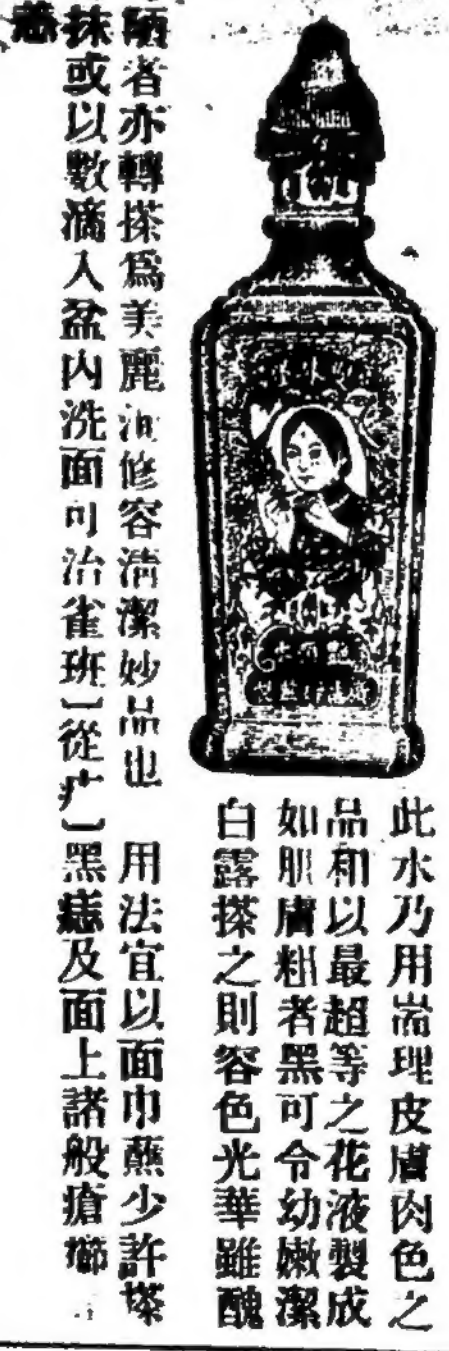 此水乃用耑理皮膚肉色之
品和以最超等之花液製成
如肌膚粗者黑可令幼嫩潔
白露搽之則容色光華雖醜
陋者亦轉搽爲美麗洵修容淸潔妙品也 用法宜以面巾蘸少許搽
抹或以數滴入盆內洗面可治雀班〔從疒〕黑痣及面上諸般瘡癤